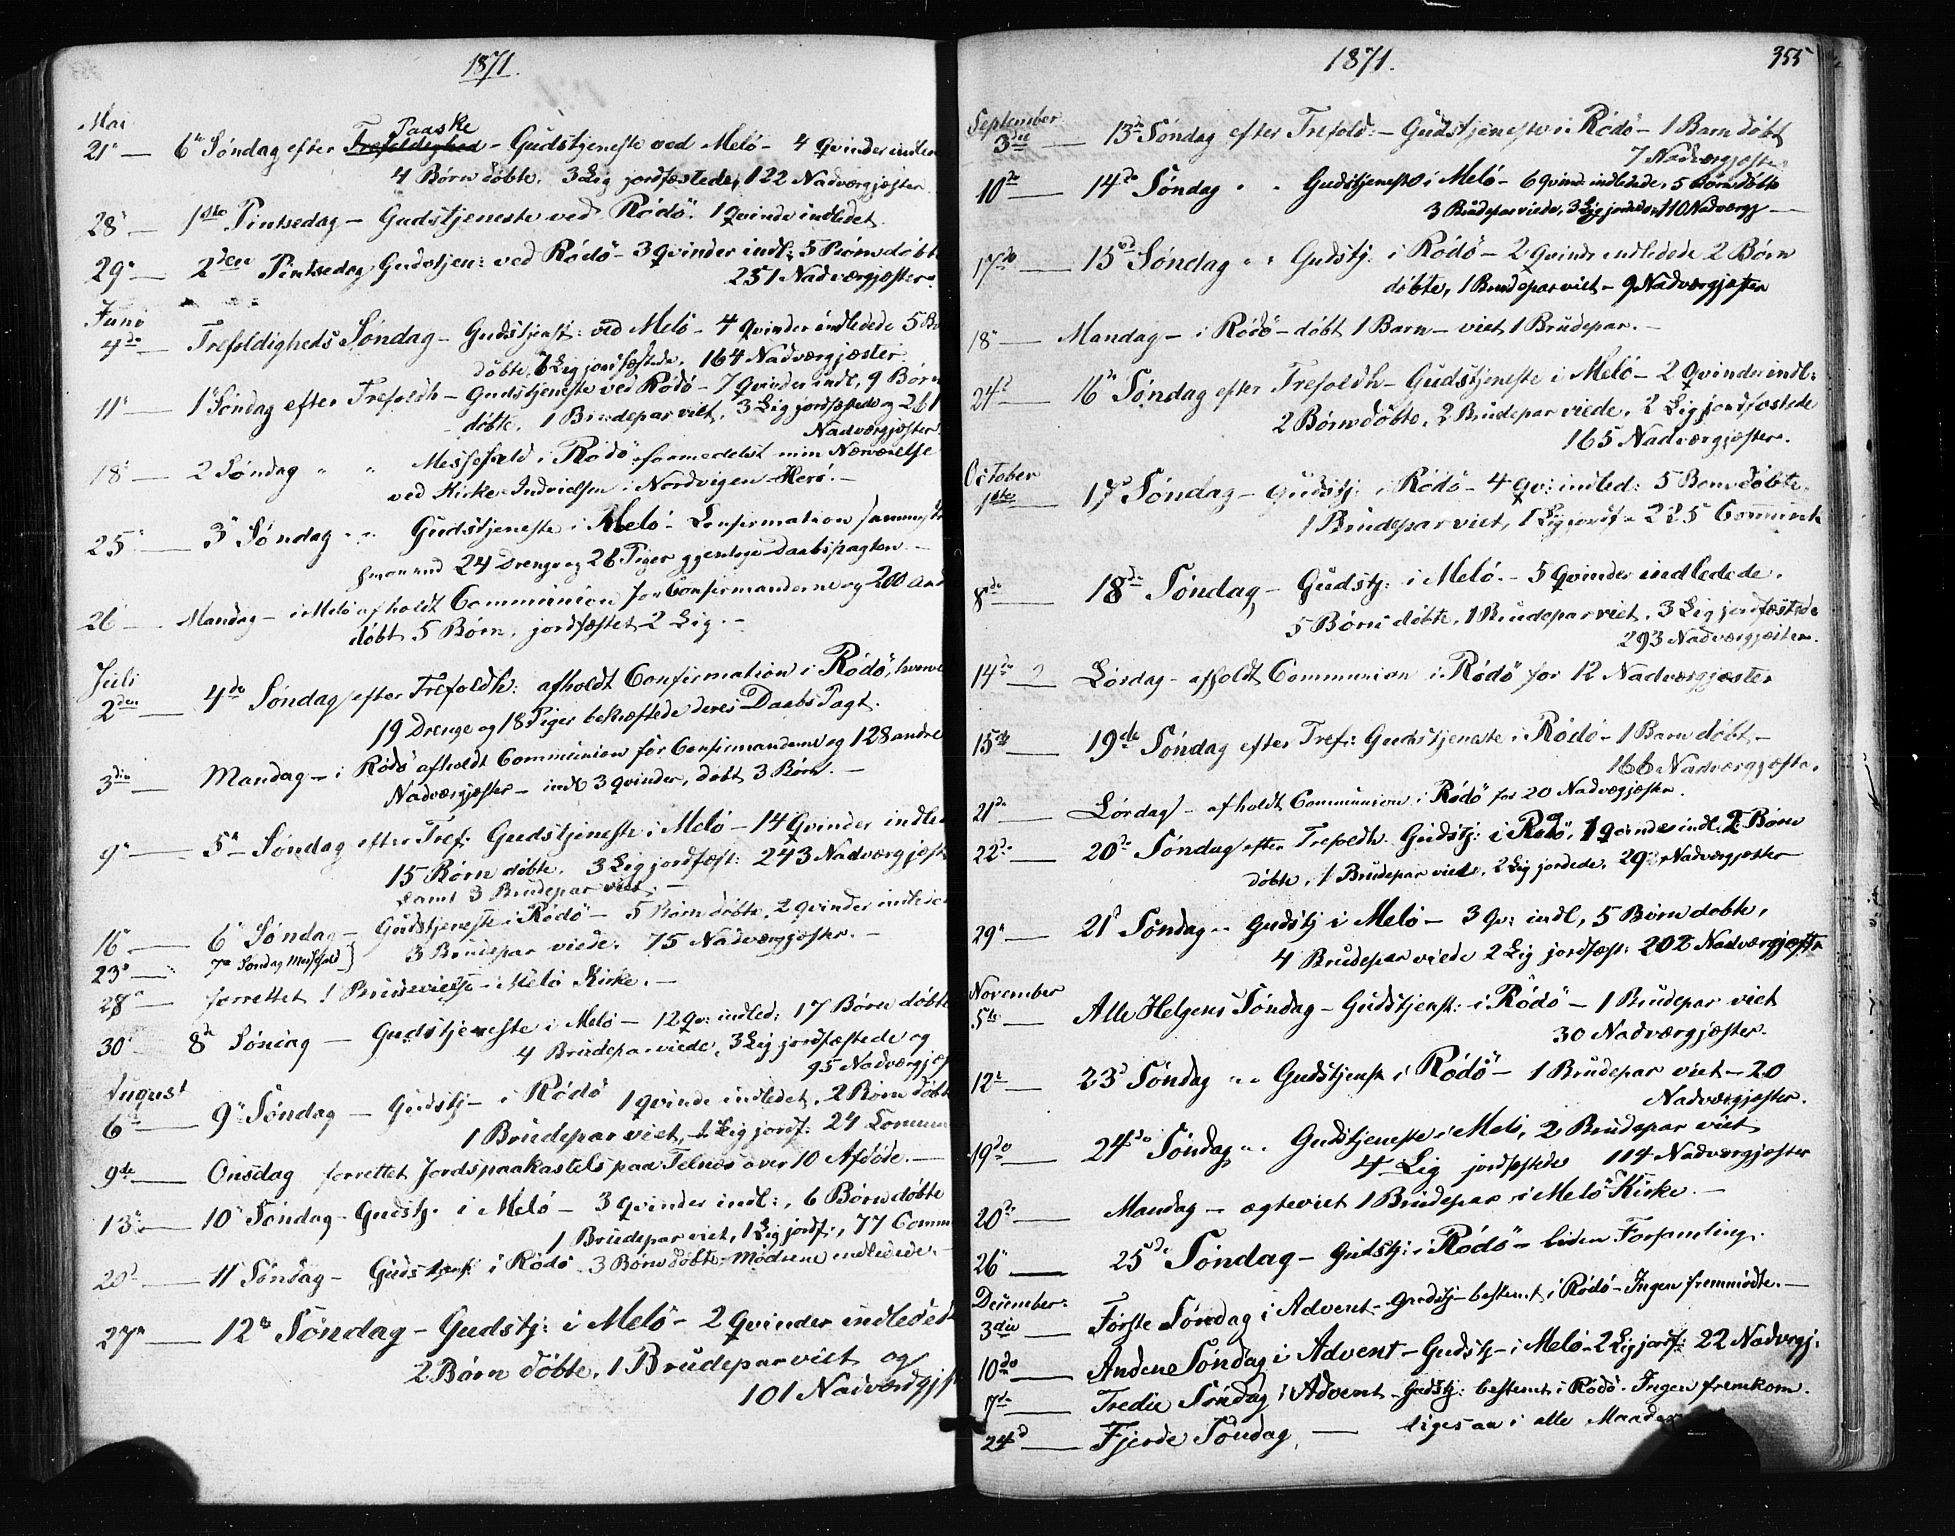 1871.
Mai
21de — 6te Søndag efter Trefoldighed Paaske – Gudstjeneste ved Melö – 4 Qvinder indlede
4 Børn døbte, 3 Lig jordfæstede, 122 Nadværgjæster.
28de — 1ste Pintsedag – Gudstjeneste ved Rödö. 1 Qvinde indledet.
29de — 2den Pintsedag Gudstjen: ved Rödö – 3 Qvinder indl: 5 Børn døbt
251 Nadværgjæster.
Juni
4de — Trefoldigheds Søndag – Gudstjenst: ved Melö – 4 Qvinder indledede 5 Bø
døbte, Lig jordfæstede, 164 Nadværgjæster.
11te — 1 Søndag efter Trefoldh – Gudstjeneste ved Rödö – 7 Qvinder indl, 9 Børn
døbte, 1 Brudepar viet, 3 Lig jordfæstede og 261
Nadværgjæster.
18de — 2 Søndag " " Messefald i Rödö formedelst min Nærværelse
ved Kirke-Indvielsen i Nordvigen – Herö. –
25de — 3de Søndag " " Gudstjeneste i Melö – Confirmation
24 Drenge og 26 Piger Daabspagten –
26 — Mandag – i Melö afholdt Communion for Confirmanderne og 200 and
døbt 5 Børn, jordfæstet 2 Lig. –
Juli
2den — 4de Søndag efter Trefoldh: afholdt Confirmation i Rödö, hvorve
19 Drenge og 18 Piger bekræftede deres Daabs Pagt.
3die — Mandag – i Rödö afholdt Communion for Confirmanderne og 128 andre
Nadværgjæster – indl 3 Qvinder, døbt 3 Børn. –
9de — 5te Søndag efter Tref: Gudstjeneste i Melö – 14 Qvinder indled
15 Børn døbte, 3 Lig jordfæst: 243 Nadværgjæst
samt 3 Brudepar viet. –
16de — 6te Søndag – Gudstjeneste i Rödö – 5 Børn døbte, 2 Qvinder indlede
3 Brudepar viede. 75 Nadværgjæster. –
23de — 7de Søndag Messefald }
28de — forrettet 1 Brudevielse – Melö Kirke. –
30de — 8de Søndag – Gudstjeneste i Melö – 12 Qv: indled: 17 Børn døbte
4 Brudepar viede, 3 Lig jordfæstede og
95 Nadværgjæs
August
6te — 9de Søndag – Gudstj – i Rödö 1 Qvinde indledet, 2 Børn døbt
1 Brudepar viet, 1 Lig jordf: 24 Commun
9de — Onsdag forrettet Jordspaakastels paa Telnæs over 10 Afdøde. –
13de — 10de Søndag – Gudstj. i Melö – 3 Qvinder indl:, 6 Børn døbte
1 Brudepar viet, 1 Lig jordf:, 77 Commu
20de — 11 Søndag – Gudstjenst i Rödö 3 Børn døbte – Mødrene indledede. –
27de — 12te Søndag – Gudstj: i Melö – 2 Qvinder indledede
2 Børn døbte, 1 Brudepar viet og
101 Nadværdgjæs
1871.
355
September
3die — 13de Søndag efter Trefold: – Gudstjeneste i Rödö – 1 Barn døbt
7 Nadværgjæste
10de — 14de Søndag " " Gudstjeneste i Melö – 6 Qvind indledede, 5 Børn døbte
3 Brudepar viede, 3 Lig jordede, 110 Nadværgj —
17de — 15de Søndag " " Gudstj: i Rödö – 2 Qvinder indledede 2 Børn
døbte, 1 Brudepar viet – 9 Nadværgjæster
18de Mandag – i Rödö – døbt 1 Barn – viet 1 Brudepar. –
24de — 16de Søndag efter Trefoldh – Gudstjeneste i Melö – 2 Qvinder indl:
2 Børn døbte, 2 Brudepar viede, 2 Lig jordfæstede
165 Nadværgjæster.
October
1ste — 17de Søndag – Gudstj: i Rödö – 4 Qv: indled: 5 Børn døbte,
1 Brudepar viet, 1 Lig jordf – 225 Communik
8de — 18de Søndag – Gudstj: i Melö. – 5 Qvinder indledede.
5 Børn døbte, 1 Brudepar viet, 3 Lig jordfæstede
293 Nadværgjæster.
14de — Lørdag – afholdt Communion i Rödö for 12 Nadværgjæster
15de — 19de Søndag efter Tref: Gudstjeneste i Rödö – 1 Barn døbt –
166 Nadværgjæste.
21de — Lørdag – afholdt Communion i Rödö for 20 Nadvægjæster.
22de — 20de Søndag efter Trefoldh. Gudstj: i Rödö, 1 Qvinde indl. 2 Børn
døbte, 1 Brudepar viet, 2 Lig jordede, 29 Nadværgjæster
29de — 21de Søndag " Gudstj i Melö – 3 Qv: indl, 5 Børn døbte,
4 Brudepar viede 2 Lig jordfæst: 202 Nadværgjæstr
November
5te — Alle Helgens Søndag – Gudstjenst: i Rödö – 1 Brudepar viet
30 Nadværgjæster.
12te — 23de Søndag " " Gudstjenste i Rödö – 1 Brudepar viet – 20
Nadværgjæster.
19de — 24de Søndag " " Gudstjeneste i Melö, 2 Brudepar viet
4 Lig jordfæstede 114 Nadværgjæster
20de — Mandag – ægteviet 1 Brudepar i Melö Kirke. –
26de — 25de Søndag – Gudstj: i Rödö – liden Forsamling.
December:
3die — Første Søndag i Advent – Gudstj – bestemt i Rödö – Ingen fremmødte. –
10de — Anden Søndag i Advent – Gudstj – i Melö – 2 Lig jordf: 22 Nadvrgj.
17de — Tredie Søndag i Advent – Gudstj: bestemt i Rödö. Ingen fremkom.
24de — Fjerde Søndag, — ligesaa i alle Maader